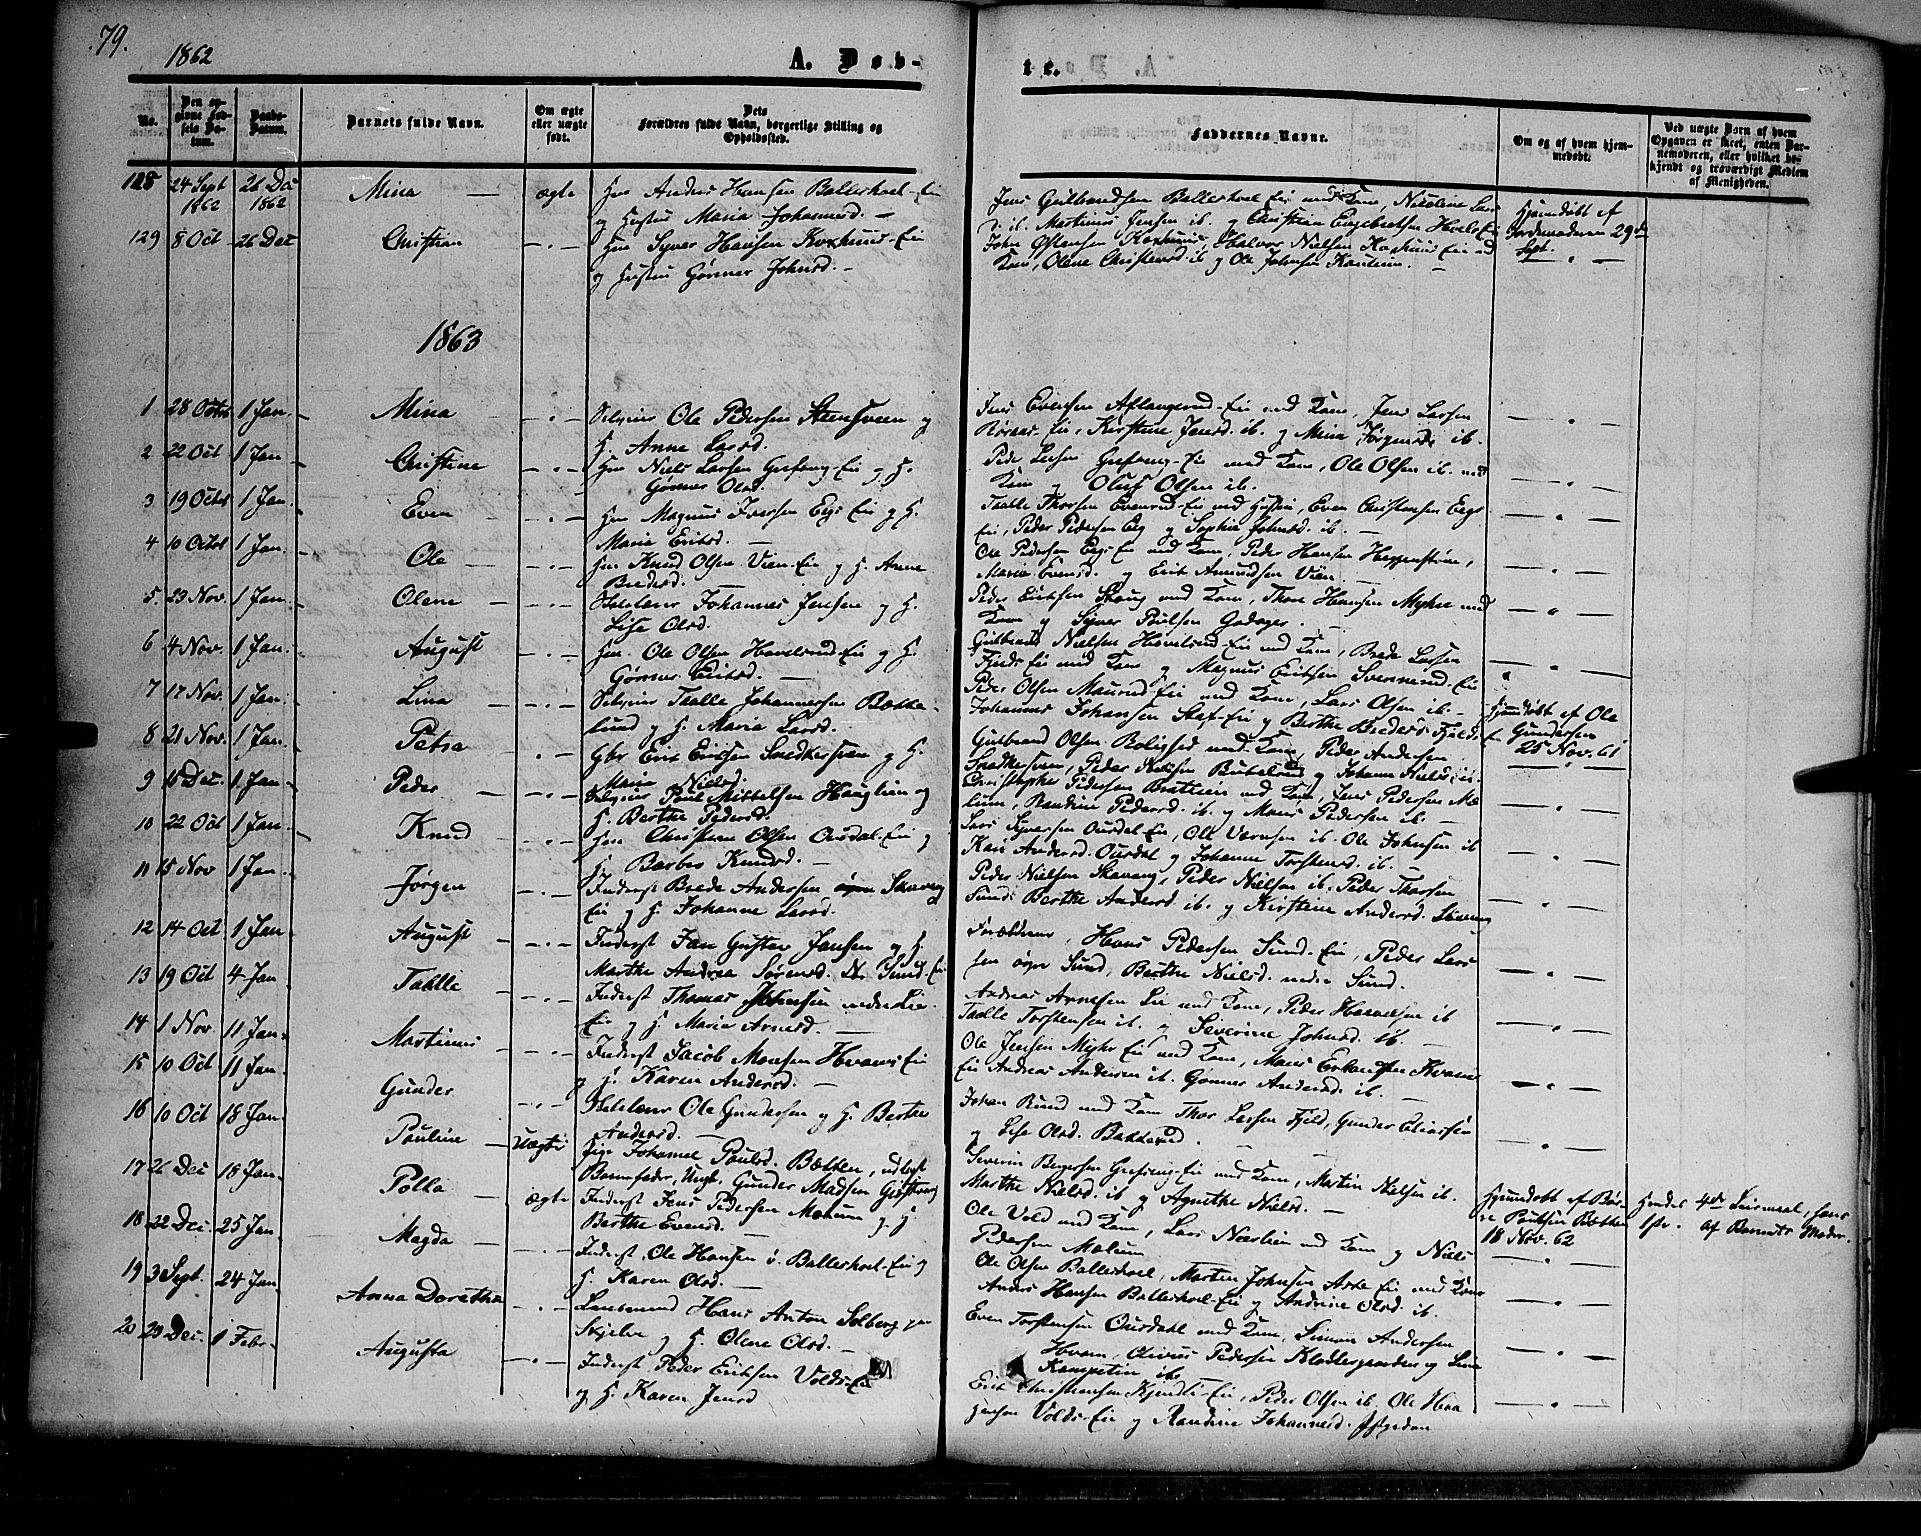 79.
1862
A. Døb-
te.
No.
Den op-
givne Fød-
sels Da-
tum.
Daabs-
Datum.
Barnets fulde Navn.
Om ægte
eller uægte
født.
Dets
Forældres fulde Navn, borgerlige Stilling og
Opholdssted.
Faddernes Navne.
Om og af hvem hjem-
medøbt.
Ved uægte Børn af hvem
Opgaven er skeet, enten Bar-
nemoderen, eller hvilket be-
kjendt og troværdigt Medlem
af Menigheden.
128 24 Sept 1862 26 Dec 1862 Mina — ægte Hmd Anders Hansen Ballerhoel-Eie
og Hustru Maria Johannesd. —
Jens Gulbrandsen Ballerhoel Eie med Kone, Nikoline Lars
d. ib. Martinus Jensen ib. og Christian Engebretsen Hoels Eie
Hjemdøbt af
Jordemoderen 29de
Sept.
129 8 Oct 26 Dec Christian — " — Hmd Syver Hansen Eie
og Hustru Gønner Johnsd. —
John Østensen Halvor Nielsen Eie med
Kone, Olene Christensd. ib. og Ole Johnsen — " —
1863
1 28 Octbr 1 Jan. — Mina — " — Selveier Ole Pedersen Steensveen og
H. Anne Larsd.
Jens Evensen Eie med Kone, Jens Larsen
Eie, Kirstine Jensd. ib. og Mina Jørgensd. ib. — " —
2 22 Oct 1 Jan — Christine — " — Hmd Niels Larsen Grefseng-Eie og H.
Gønner Olsd.
Peder Larsen Grefseng-Eie med Kone, Ole Olsen ib. med
Kone og Oluf Olsen ib. — " —
3 19 Octbr 1 Jan. — Even — " — Hmd Magnus Iversen Eegs Eie og H.
Maria Eriksd. —
Taalle Thorsen Evensrud-Eie med Hustru, Even Christensen Eegs
Eie, Peder Pedersen Eeg og Sophie Johnsd. ib. — — " —
4 10 Octbr 1 Jan. — Ole — " — Hmd Knud Olsen Vien-Eie og H. Anne
Bredesd. —
Ole Pedersen Eegs-Eie med Kone, Peder Hansen
Marie Evensd. og Erik Amundsen Vien. — — " —
5. 23 Nov. 1 Jan. Olene — — " — Johannes Jensen og H.
Lise Olsd.
Peder Eriksen Skoug med Kone, Thore Hansen Myhre med
Kone og Syver Poulsen Godager. — — " —
6 4 Nov. 1 Jan. August — " — Hmd Ole Olsen Havelsrud-Eie og H.
Gønner Eriksd. —
Gulbrand Nielsen Havelsrud-Eie med Kone, Brede Larsen
Fjelds Eie med Kone og Magnus Eriksen Svennerud-Eie — " —
7 17 Nov. 1 Jan. Lina — — " — Selveier Taalle Johannesen Bakke-
lund og H. Maria Larsd.
Peder Olsen Maurud Eie med Kone, Lars Olsen ib. —
Johannes Johansen Staf-Eie og Berthe Bredesd. Fjelds E.
Hjemdøbt af Ole
Gundersen
25 Nov. 61
8 21 Nov. 1 Jan. Petra — " — Gbr Erik Eriksen Snedkersveen og H.
Maria Nielsd.
Gulbrand Olsen Bolighed med Kone, Peder Andersen
Snedkersveen, Peder Nielsen og Johanne Nielsd. ib. — " —
9 15 Dec. 1 Jan. Peder — — " — Selveier Poul Mikkelsen Hauglien og
H. Berthe Pedersd.
Christopher Pedersen Bratlien med Kone, Jens Pedersen Mæ-
lum, Randine Pedersd. ib. og Mons Pedersen ib. — — " —
10 22 Oct 1 Jan — Knud — " — Hmd Christian Olsen Ousdal-Eie og
H. Barbro Knudsd. —
Lars Syversen Ousdal-Eie, Ole ib. Ole Johnsen ib
Kari Andersd. Ousdal og Johanne Torstensd. ib. — — " —
11 15 Nov 1 Jan. — Jørgen — " — Inderst Brede Andersen Skaveng
Eie og H. Johanne Larsd.
Peder Nielsen Skaveng, Peder Nielsen ib. Peder Thorsen
Sund. Berthe Andersd. ib. og Kirstine Andersd. Skaveng — " —
12 14 Oct 1 Jan — August — — " — Inderst Jan Gustav Jansen og H.
Marthe Andrea Sørensd. N. Sund-Eie
Forældrene, Hans Pedersen Sund-Eie, Peder Lars
sen øvre Sund, Berthe Nielsd. nedre Sund. — " —
13 19 Oct 4 Jan Taalle — — " — Inderst Thomas nedre Lie-
Eie og H. Maria Arnesd. —
Andreas Arnesen Lie med Kone, Peder ib
Taalle Torstensen ib. og Severine Johnsd. ib. — — " —
14 1 Nov. 11 Jan. Martinus — — " — Inderst Jacob Monsen Hvams Eie
og H. Karen Andersd. —
Ole Jensen Myhr Eie med Kone, Mons Erlandsen Kvams
Eie Andreas Andersen ib. Gønner Andersd. ib. — — " —
15 10 Oct 11 Jan. Gunder — " — Ole Gundersen og H. Berthe
Andersd. —
Johan Rund med Kone Thor Larsen Fjeld, Gunder Eliassen
og Lise Olsd. Bakkerud. — — " —
16 10 Oct 18 Jan. Pauline — Uægte Pige Johanne Poulsd. Bækken, udlagt
Barnefader, Ungk. Gunder Madsen
Severin Børgersen Grefseng-Eie med Kone, Martin Nielsen ib.
Marthe Nielsd. ib og Agnethe Nielsd. —
Hjemdøbt af Bør-
re Poulsen Bækken
18 Nov. 62
Hendes 4de Leiermaal, hans
1ste. af Barnets Moder.
17 26 Dec 18 Jan. Polla — ægte Inderst Jens Pedersen Mælum og H.
Berthe Evensd. —
Ole Vold med Kone, Lars Nærlien med Kone og Niels
Pedersen Mælum — " —
18 22 Dec. 25 Jan. Magda — — " — Inderst Ole Hansen v. Ballerhoel-Eie og
H. Karen Olsd. —
Ole Olsen Ballerhoel, Morten Johnsen Eie med Kone
Anders Hansen Ballerhoel-Eie og Andrine Olsd. ib. — " —
19 3 Sept. 24 Jan. Anna Dorethea — " — Lensmand Hans Anton Solberg paa
Skjelve og H. Olene Olsd. —
Even Torstensen Ousdahl med Kone, Simon Andersen
Hvam, Olivius Pedersen Klostergaarden og Lina
ib. — " —
20 23 Dec. 1 Febr. Augusta — " — Inderst Peder Eriksen Volds-Eie
og H. Karen Jensd
Erik Christiansen Eie, Peder Olsen ib. Ole Haa
gensen Volds-Eie og Randine Johannesd. — " —